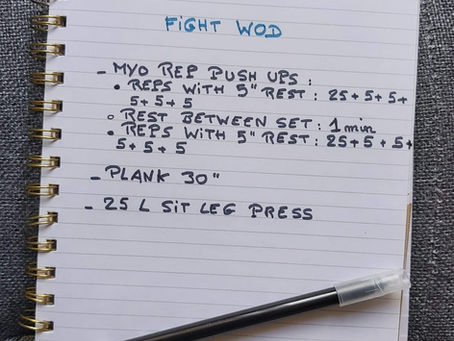 FiGHT WOD
- MYO REP PUSH UPS :
• REPS WITH 5" REST : 25+5+5+
5+5+5
○ REST BETWEEN SET : 1 min
• REPS WITH 5" REST : 25+5+5+
5+5+5
- PLANK 30"
- 25 L SiT LEG PRESS